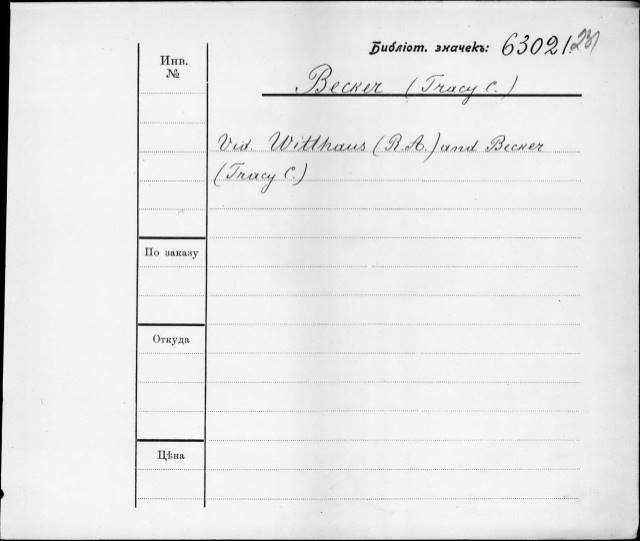 Библіот. значекъ: 63021.
Инв.
№
Becker (Tracy C.)
Vid. Witthaus (R.A.) and Becker
(Tracy C.)
По заказу
Откуда
Цѣна